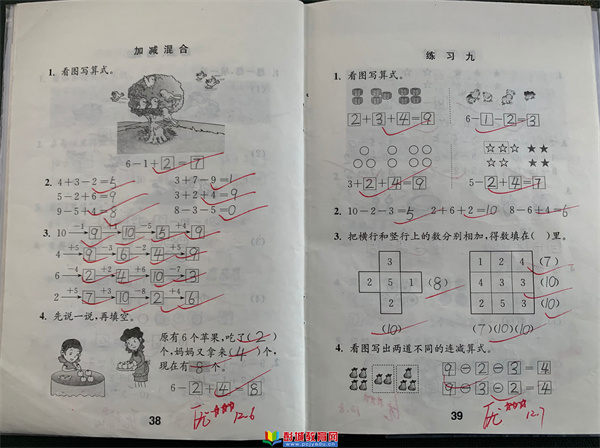 加减混合
1. 看图写算式。
6-1+2=7
2. 4+3-2=5 3+7-9=1
5-2+6=9 3+2+4=9
9-5+4=8 8-3-5=0
3. 10 -1 9 +1 10 -5 5 +4 9
4 +5 9 -3 6 -4 2 +5 9
6 -4 2 +2 4 +6 10 -7 3
2 +5 7 +3 10 -8 2 +4 6
4. 先说一说,再填空。
原有6个苹果,吃了(2)
个,妈妈又拿来(4)个,
现在有8个。
6-2+4=8
38
12.6
练习九
1. 看图写算式。
2+3+4=9 6-1-2=3
3+2+4=9 5-2+4=7
2. 10-2-3=5 2+6+2=10 8-6+4=6
3. 把横行和竖行上的数分别相加,得数填在( )里。
3
2 5 1 (8)
2
(10)
1 2 4 (7)
4 3 3 (10)
2 5 3 (10)
(7)(10)(10)
4. 看图写出两道不同的连减算式。
9-2-3=4
9-3-2=4
39
12.7
彭城教育网
www.pcjyedu.cn